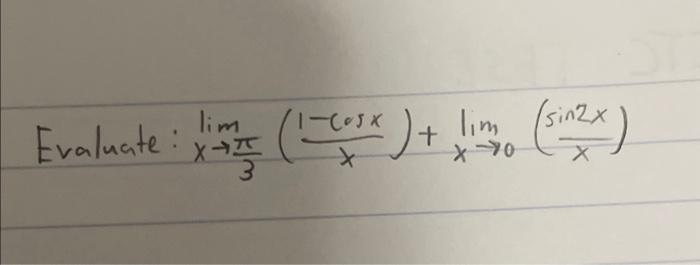 Evaluate: lim x→π/3 ((1-cosx)/x) + lim x→0 (sin2x/x)